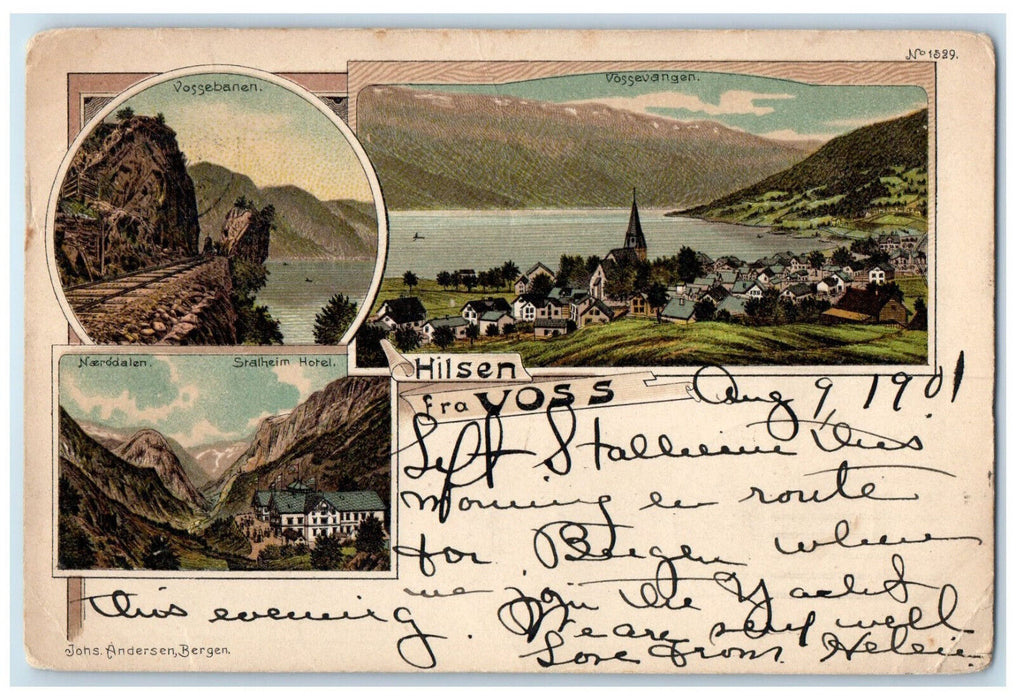 No 1529.
Vossebanen.
Vossevangen.
Nærödalen. Stalheim Hotel.
Hilsen
fra VOSS
Aug 9, 1901
Left Stalheim this
morning en route
for Bergen where
we join the Yacht
this evening.
We are very well
Love from Helen
Johs. Andersen, Bergen.